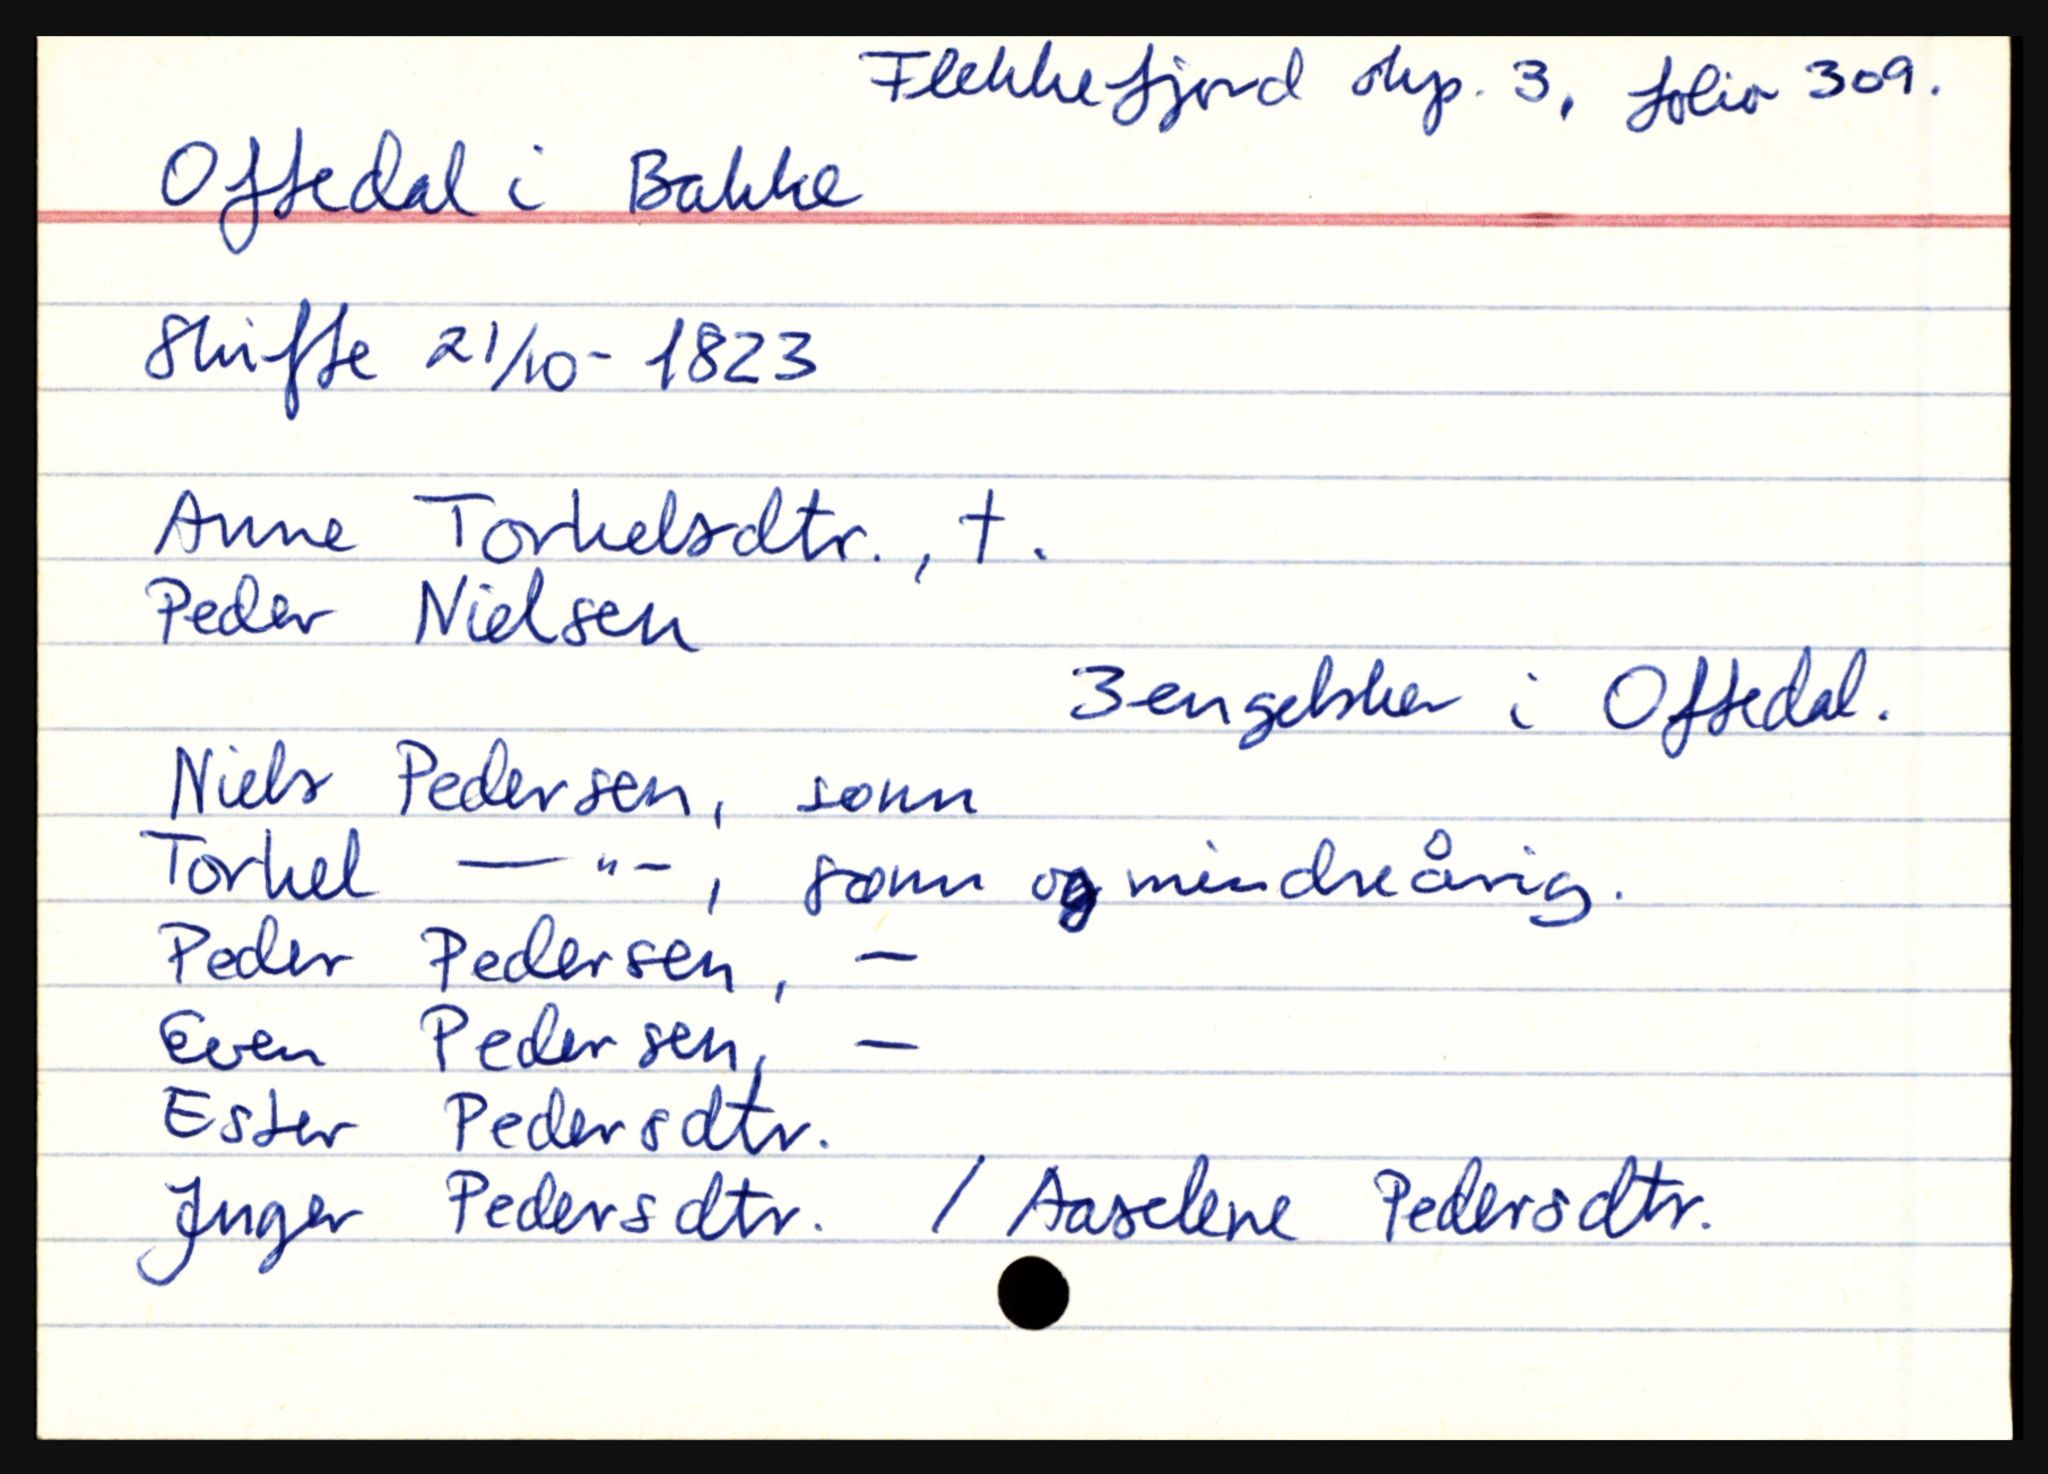 Flekkefjord skp. 3, folio 309.
Oftedal i Bakke
Skifte 21/10 - 1823
Anne Torkelsdtr., †.
Peder Nielsen
3 engelsker i Oftedal.
Niels Pedersen, sønn
Torkel — " –, sønn og mindreårig.
Peder Pedersen, —
Even Pedersen, —
Ester Pedersdtr.
Inger Pedersdtr. / Aaselene Pedersdtr.